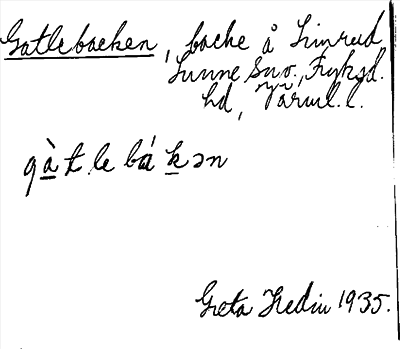 Gatlebacken, backe å Limrud
Sunne sn., Fryksd.
hd, Värml. l.
gàtlebákən
Greta Hedin 1935.